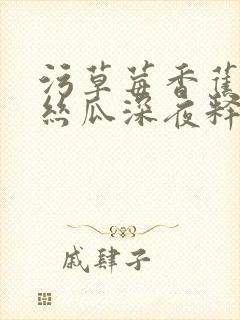 污草莓香蕉
丝瓜深夜释
戚肆子